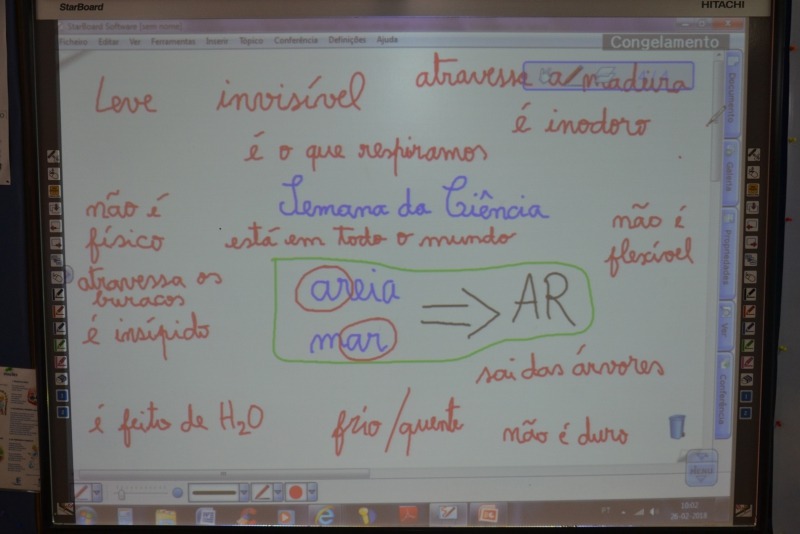 StarBoard
HITACHI
StarBoard Software [sem nome]
Ficheiro Editar Ver Ferramentas Inserir Tópico Conferência Definições Ajuda
Congelamento
Leve invisível atravessa a madeira
é inodoro
é o que respiramos
Semana da Ciência
não é
físico
está em todo o mundo
não é
flexível
atravessa os
buracos
é insípido
areia
mar
AR
sai das árvores
é feito de H2O
frio/quente
não é duro
Documento
Galeria
Propriedades
Ver
Conferência
Menu
PT
10:02
26-02-2018